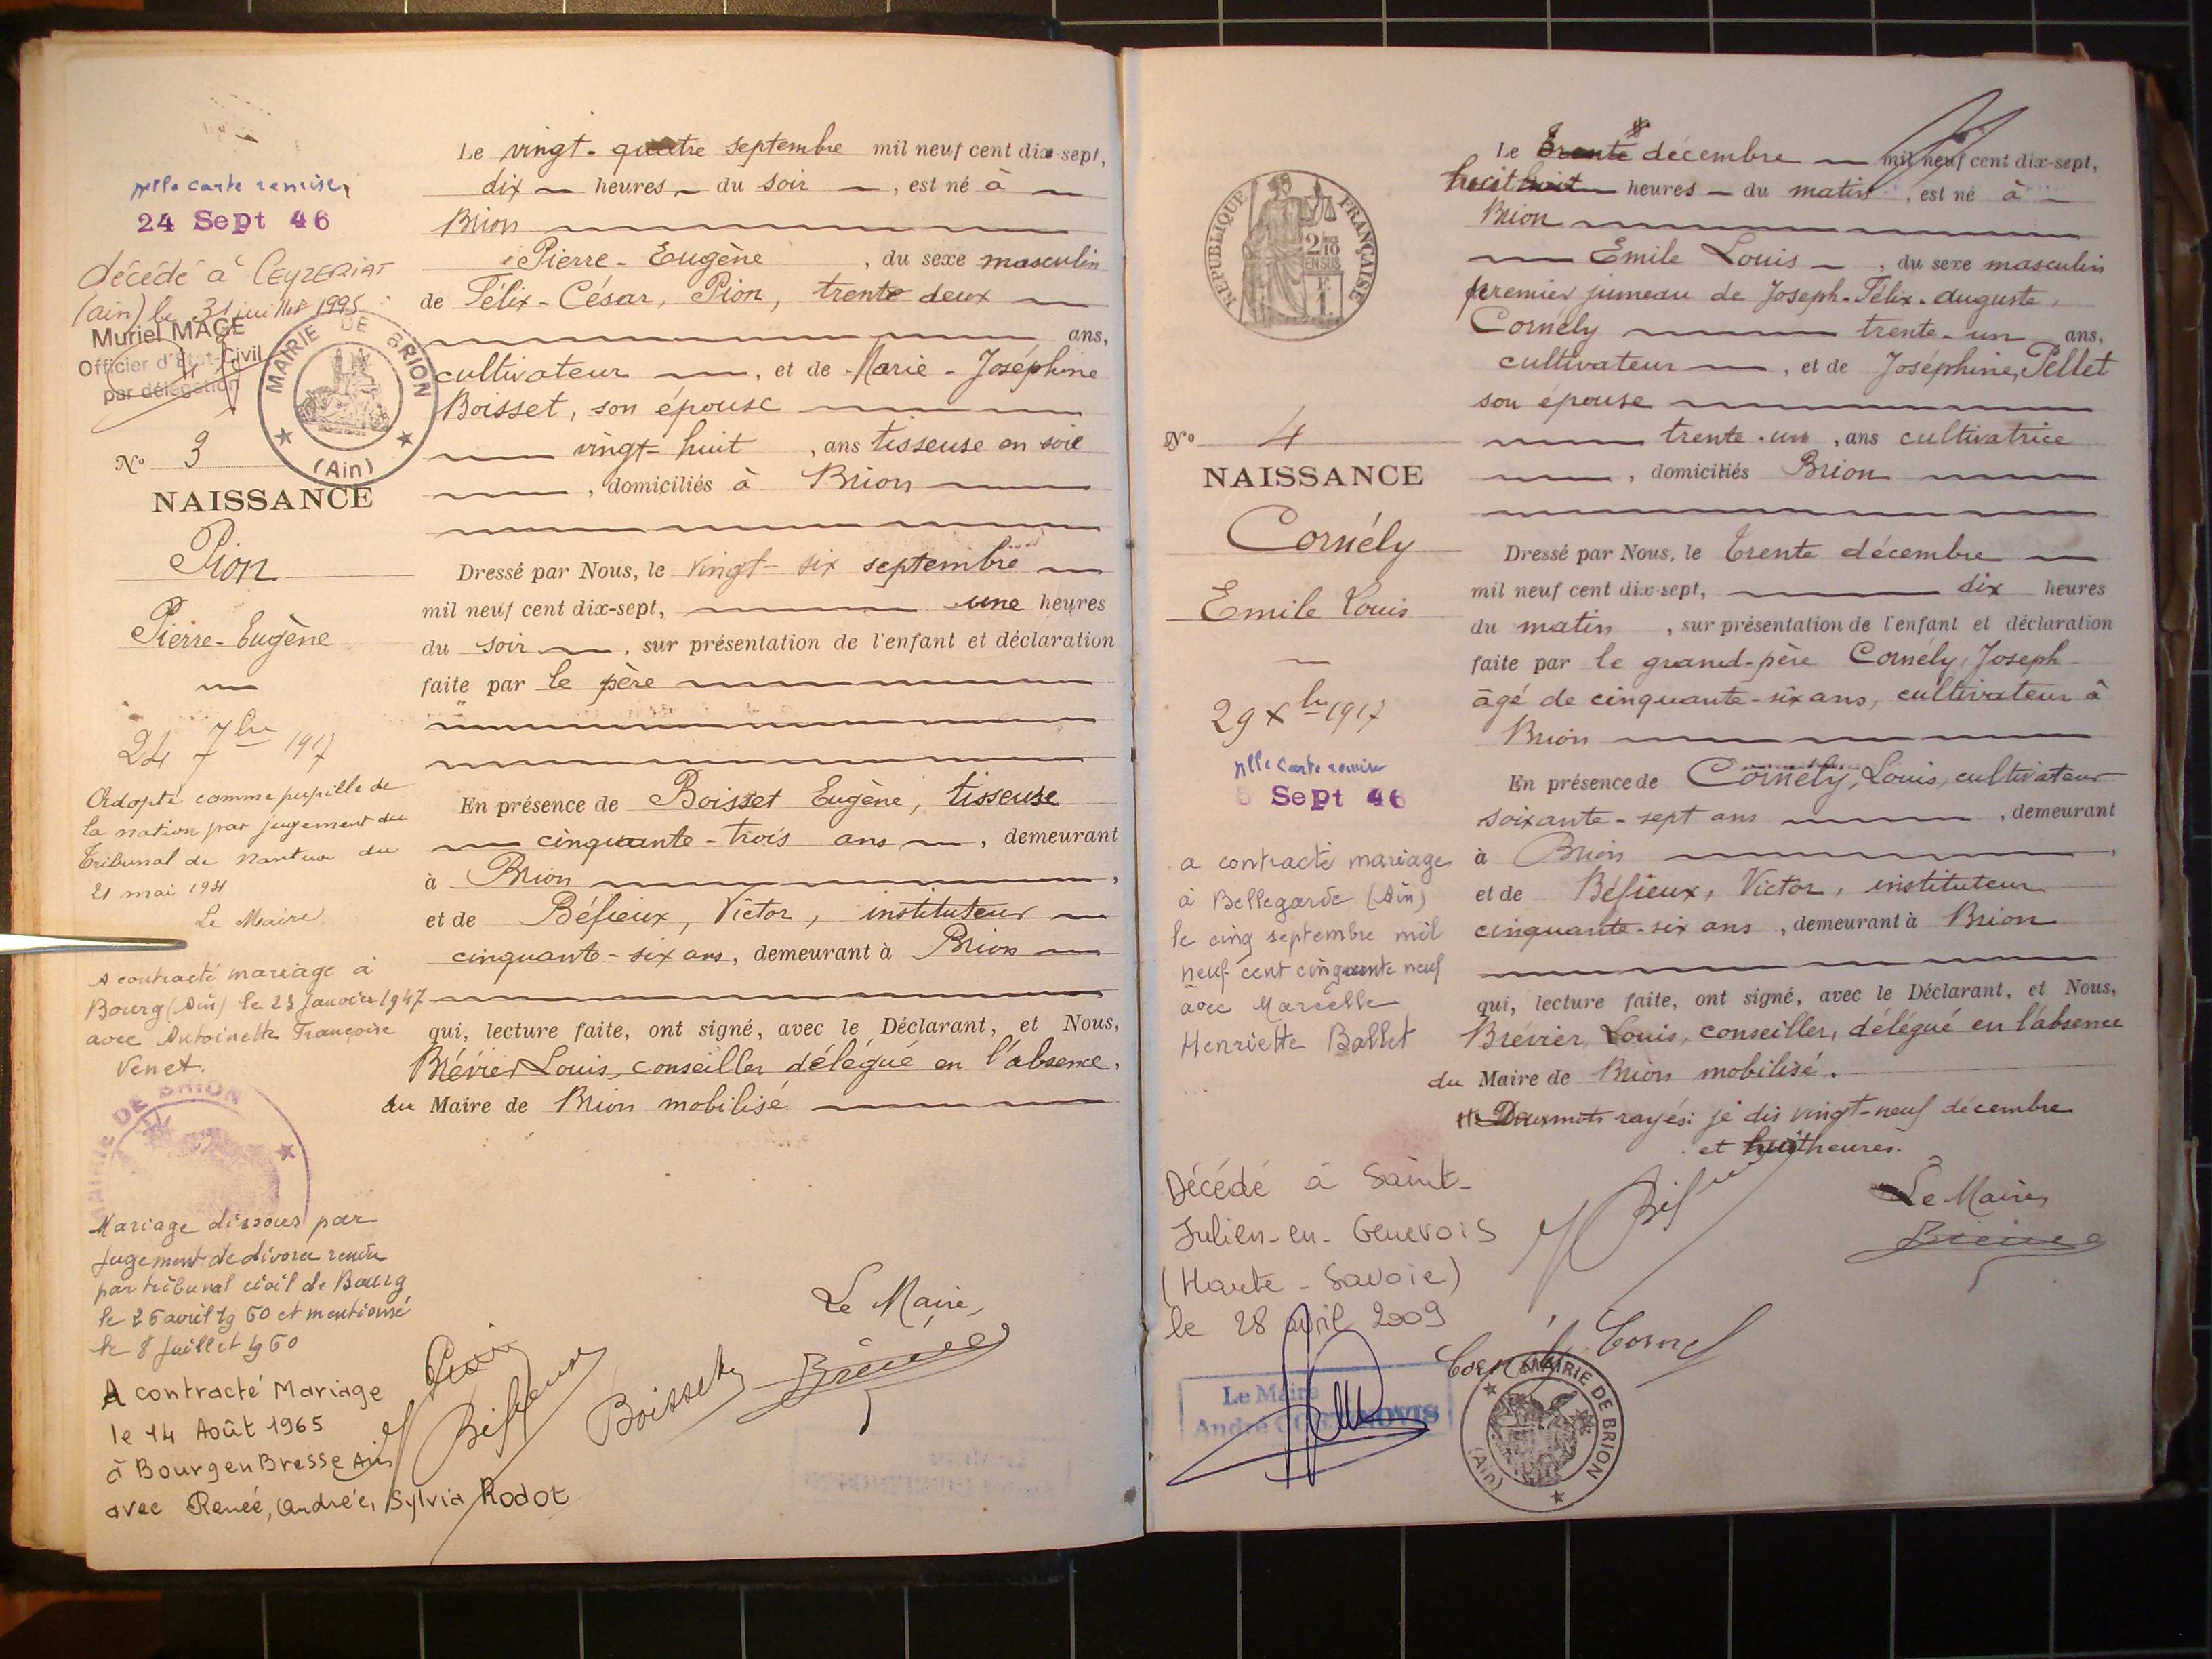 nlle carte remise,
24 Sept 46
décédé à CEYZERIAT
(ain) le 31 juillet 1995
Muriel MAGE
Officier d'État-Civil
par délégation
MAIRIE DE BRION
(Ain)
N° 3
NAISSANCE
Pion
Pierre-Eugène
24 7bre 1917
Adopté comme pupille de
la nation par jugement du
Tribunal de Nantua du
21 mai 1931
Le Maire
A contracté mariage à
Bourg (Ain) le 23 Janvier 1947
avec Antoinette Françoise
Venet.
MAIRIE DE BRION
Mariage dissous par
jugement de divorce rendu
par tribunal civil de Bourg
le 26 avril 1960 et mentionné
le 8 Juillet 1960
A contracté Mariage
le 14 Août 1965
à Bourg en Bresse Ain
avec Renée, Andrée, Sylvia Rodot
Le vingt-quatre septembre mil neuf cent dix-sept,
dix heures du soir, est né à
Brion
Pierre-Eugène, du sexe masculin
de Félix-César, Pion, trente deux
ans,
cultivateur, et de Marie-Joséphine
Boisset, son épouse
vingt-huit, ans tisseuse en soie
, domiciliés à Brion
Dressé par Nous, le vingt-six septembre
mil neuf cent dix-sept, une heures
du soir, sur présentation de l'enfant et déclaration
faite par le père
En présence de Boisset Eugène, tisseuse
cinquante-trois ans, demeurant
à Brion,
et de Béfieux, Victor, instituteur
cinquante-six ans, demeurant à Brion
qui, lecture faite, ont signé, avec le Déclarant, et Nous,
Brévier Louis, conseiller délégué en l'absence,
du Maire de Brion mobilisé
Le Maire,
Pion
Boisset
REPUBLIQUE FRANÇAISE
2/10
EN SUS
1 F.
N° 4
NAISSANCE
Cornély
Emile Louis
29 Xbre 1917
nlle carte remise
5 Sept 46
a contracté mariage
à Bellegarde (Ain)
le cinq septembre mil
neuf cent cinquante neuf
avec Marcelle
Henriette Ballet
Décédé à Saint-
Julien-en-Genevois
(Haute-Savoie)
le 28 avril 2009
Le Maire
André
Le trente décembre mil neuf cent dix-sept,
huit huit heures du matin, est né à
Brion
Emile Louis, du sexe masculin
premier jumeau de Joseph-Félix-Auguste,
Cornély trente-un ans,
cultivateur, et de Joséphine, Pellet
son épouse
trente-un, ans cultivatrice
, domiciliés Brion
Dressé par Nous, le trente décembre
mil neuf cent dix-sept, dix heures
du matin, sur présentation de l'enfant et déclaration
faite par le grand-père Cornély, Joseph-
âgé de cinquante-six ans, cultivateur à
Brion
En présence de Cornély, Louis, cultivateur
soixante-sept ans, demeurant
à Brion,
et de Béfieux, Victor, instituteur
cinquante-six ans, demeurant à Brion
qui, lecture faite, ont signé, avec le Déclarant, et Nous,
Brévier, Louis, conseiller, délégué en l'absence
du Maire de Brion mobilisé.
Deux mots rayés: je dis vingt-neuf décembre
et huit heures.
Le Maire,
MAIRIE DE BRION
(Ain)